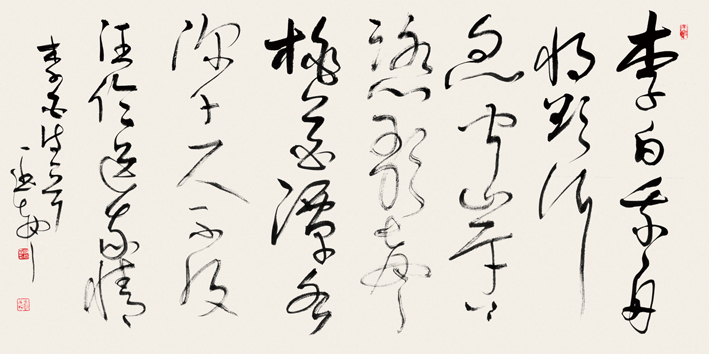 李白乘舟
将欲行
忽闻岸上
踏歌声
桃花潭水
深千尺不及
汪伦送我情
李白诗